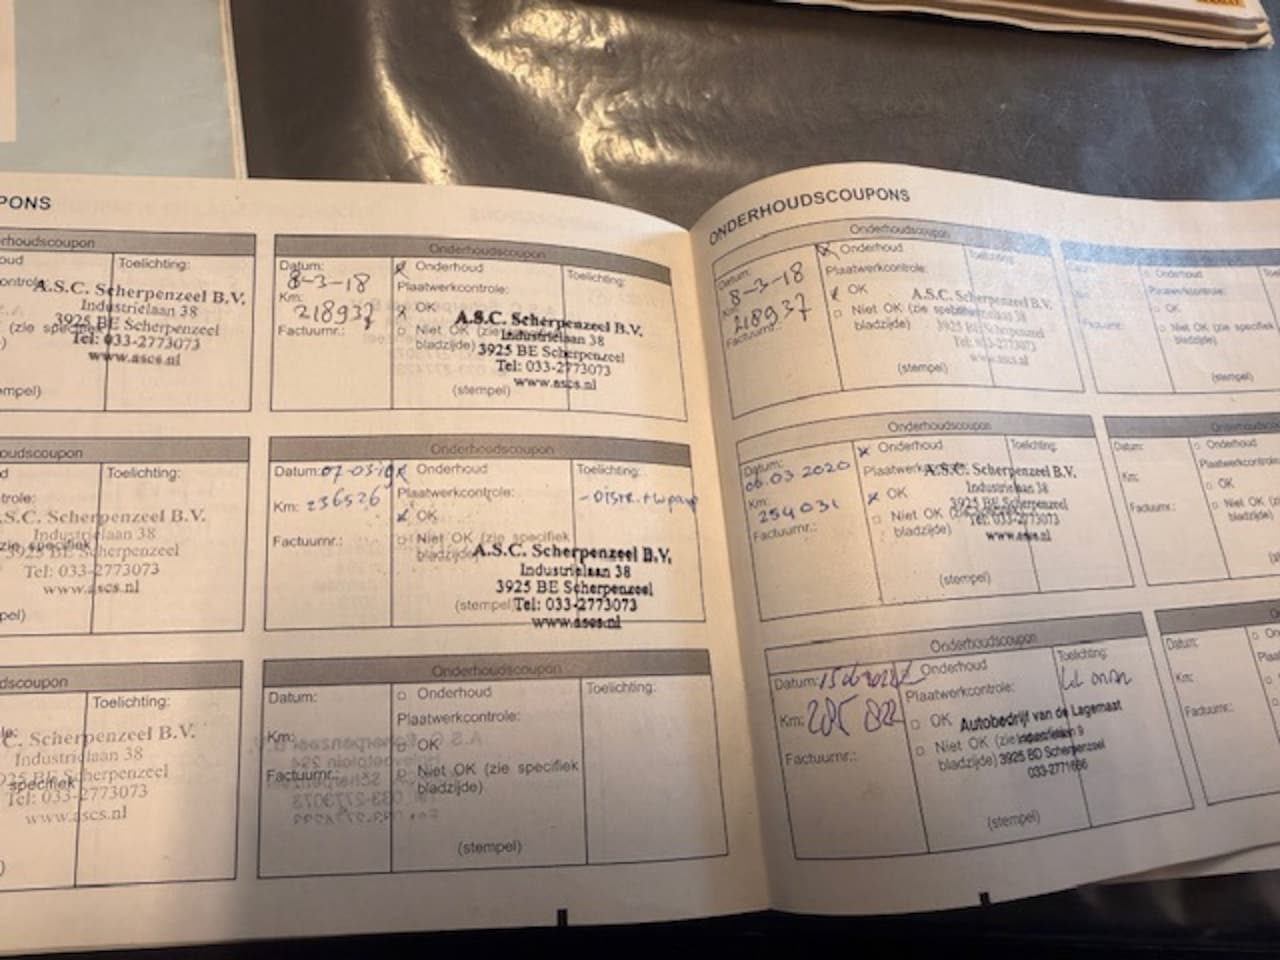 PONS
rhoudscoupon
oud
Toelichting:
ontrole
A.S.C. Scherpenzeel B.V.
Industrielaan 38
3925 BE Scherpenzeel
(zie specifiek
Tel: 033-2773073
www.ascs.nl
mpel)
oudscoupon
d
Toelichting:
trole:
.S.C. Scherpenzeel B.V.
Industrielaan 38
zie specifiek
3925 BE Scherpenzeel
Tel: 033-2773073
www.ascs.nl
pel)
dscoupon
Toelichting:
le:
C. Scherpenzeel B.V.
Industrielaan 38
925 BE Scherpenzeel
specifiek
Tel: 033-2773073
www.ascs.nl
)
Onderhoudscoupon
Datum:
8-3-18
Km:
218937
Factuurnr.:
Onderhoud
Plaatwerkcontrole:
OK
Niet OK (zie specifiek
bladzijde)
(stempel)
Toelichting:
A.S.C. Scherpenzeel B.V.
Industrielaan 38
3925 BE Scherpenzeel
Tel: 033-2773073
www.ascs.nl
Onderhoudscoupon
Datum: 07-03-19
Km: 236526
Factuurnr.:
Onderhoud
Plaatwerkcontrole:
OK
Niet OK (zie specifiek
bladzijde)
(stempel)
Toelichting:
A.S.C. Scherpenzeel B.V.
Industrielaan 38
3925 BE Scherpenzeel
Tel: 033-2773073
www.ascs.nl
Onderhoudscoupon
Datum:
Km:
Factuurnr.:
Onderhoud
Plaatwerkcontrole:
OK
Niet OK (zie specifiek
bladzijde)
(stempel)
Toelichting:
ONDERHOUDSCOUPONS
Onderhoudscoupon
Datum:
8-3-18
Km:
218937
Factuurnr.:
Onderhoud
Plaatwerkcontrole:
OK
Niet OK (zie specifiek
bladzijde)
(stempel)
Toelichting:
A.S.C. Scherpenzeel B.V.
Industrielaan 38
3925 BE Scherpenzeel
Tel: 033-2773073
www.ascs.nl
Onderhoudscoupon
Datum:
06.03 2020
Km:
254031
Factuurnr.:
Onderhoud
Plaatwerkcontrole:
OK
Niet OK (zie specifiek
bladzijde)
(stempel)
Toelichting:
A.S.C. Scherpenzeel B.V.
Industrielaan 38
3925 BE Scherpenzeel
Tel: 033-2773073
www.ascs.nl
Onderhoudscoupon
Datum:
Km:
Factuurnr.:
Onderhoud
Plaatwerkcontrole:
OK
Niet OK (zie
bladzijde)
(stempel)
Toelichting:
Autobedrijf van de Lagemaat
Industrielaan 9
3925 BD Scherpenzeel
033-2771666
Datum:
Km:
Factuurnr.:
Onderhoud
Plaatwerkcontrole:
OK
Niet OK (zie specifiek
bladzijde)
(stempel)
Onderhoudscou
Datum:
Km:
Factuurnr.:
Onderhoud
Plaatwerkcontrole:
OK
Niet OK (zie
bladzijde)
Datum:
Km:
Factuurnr.:
Ond
Plaa